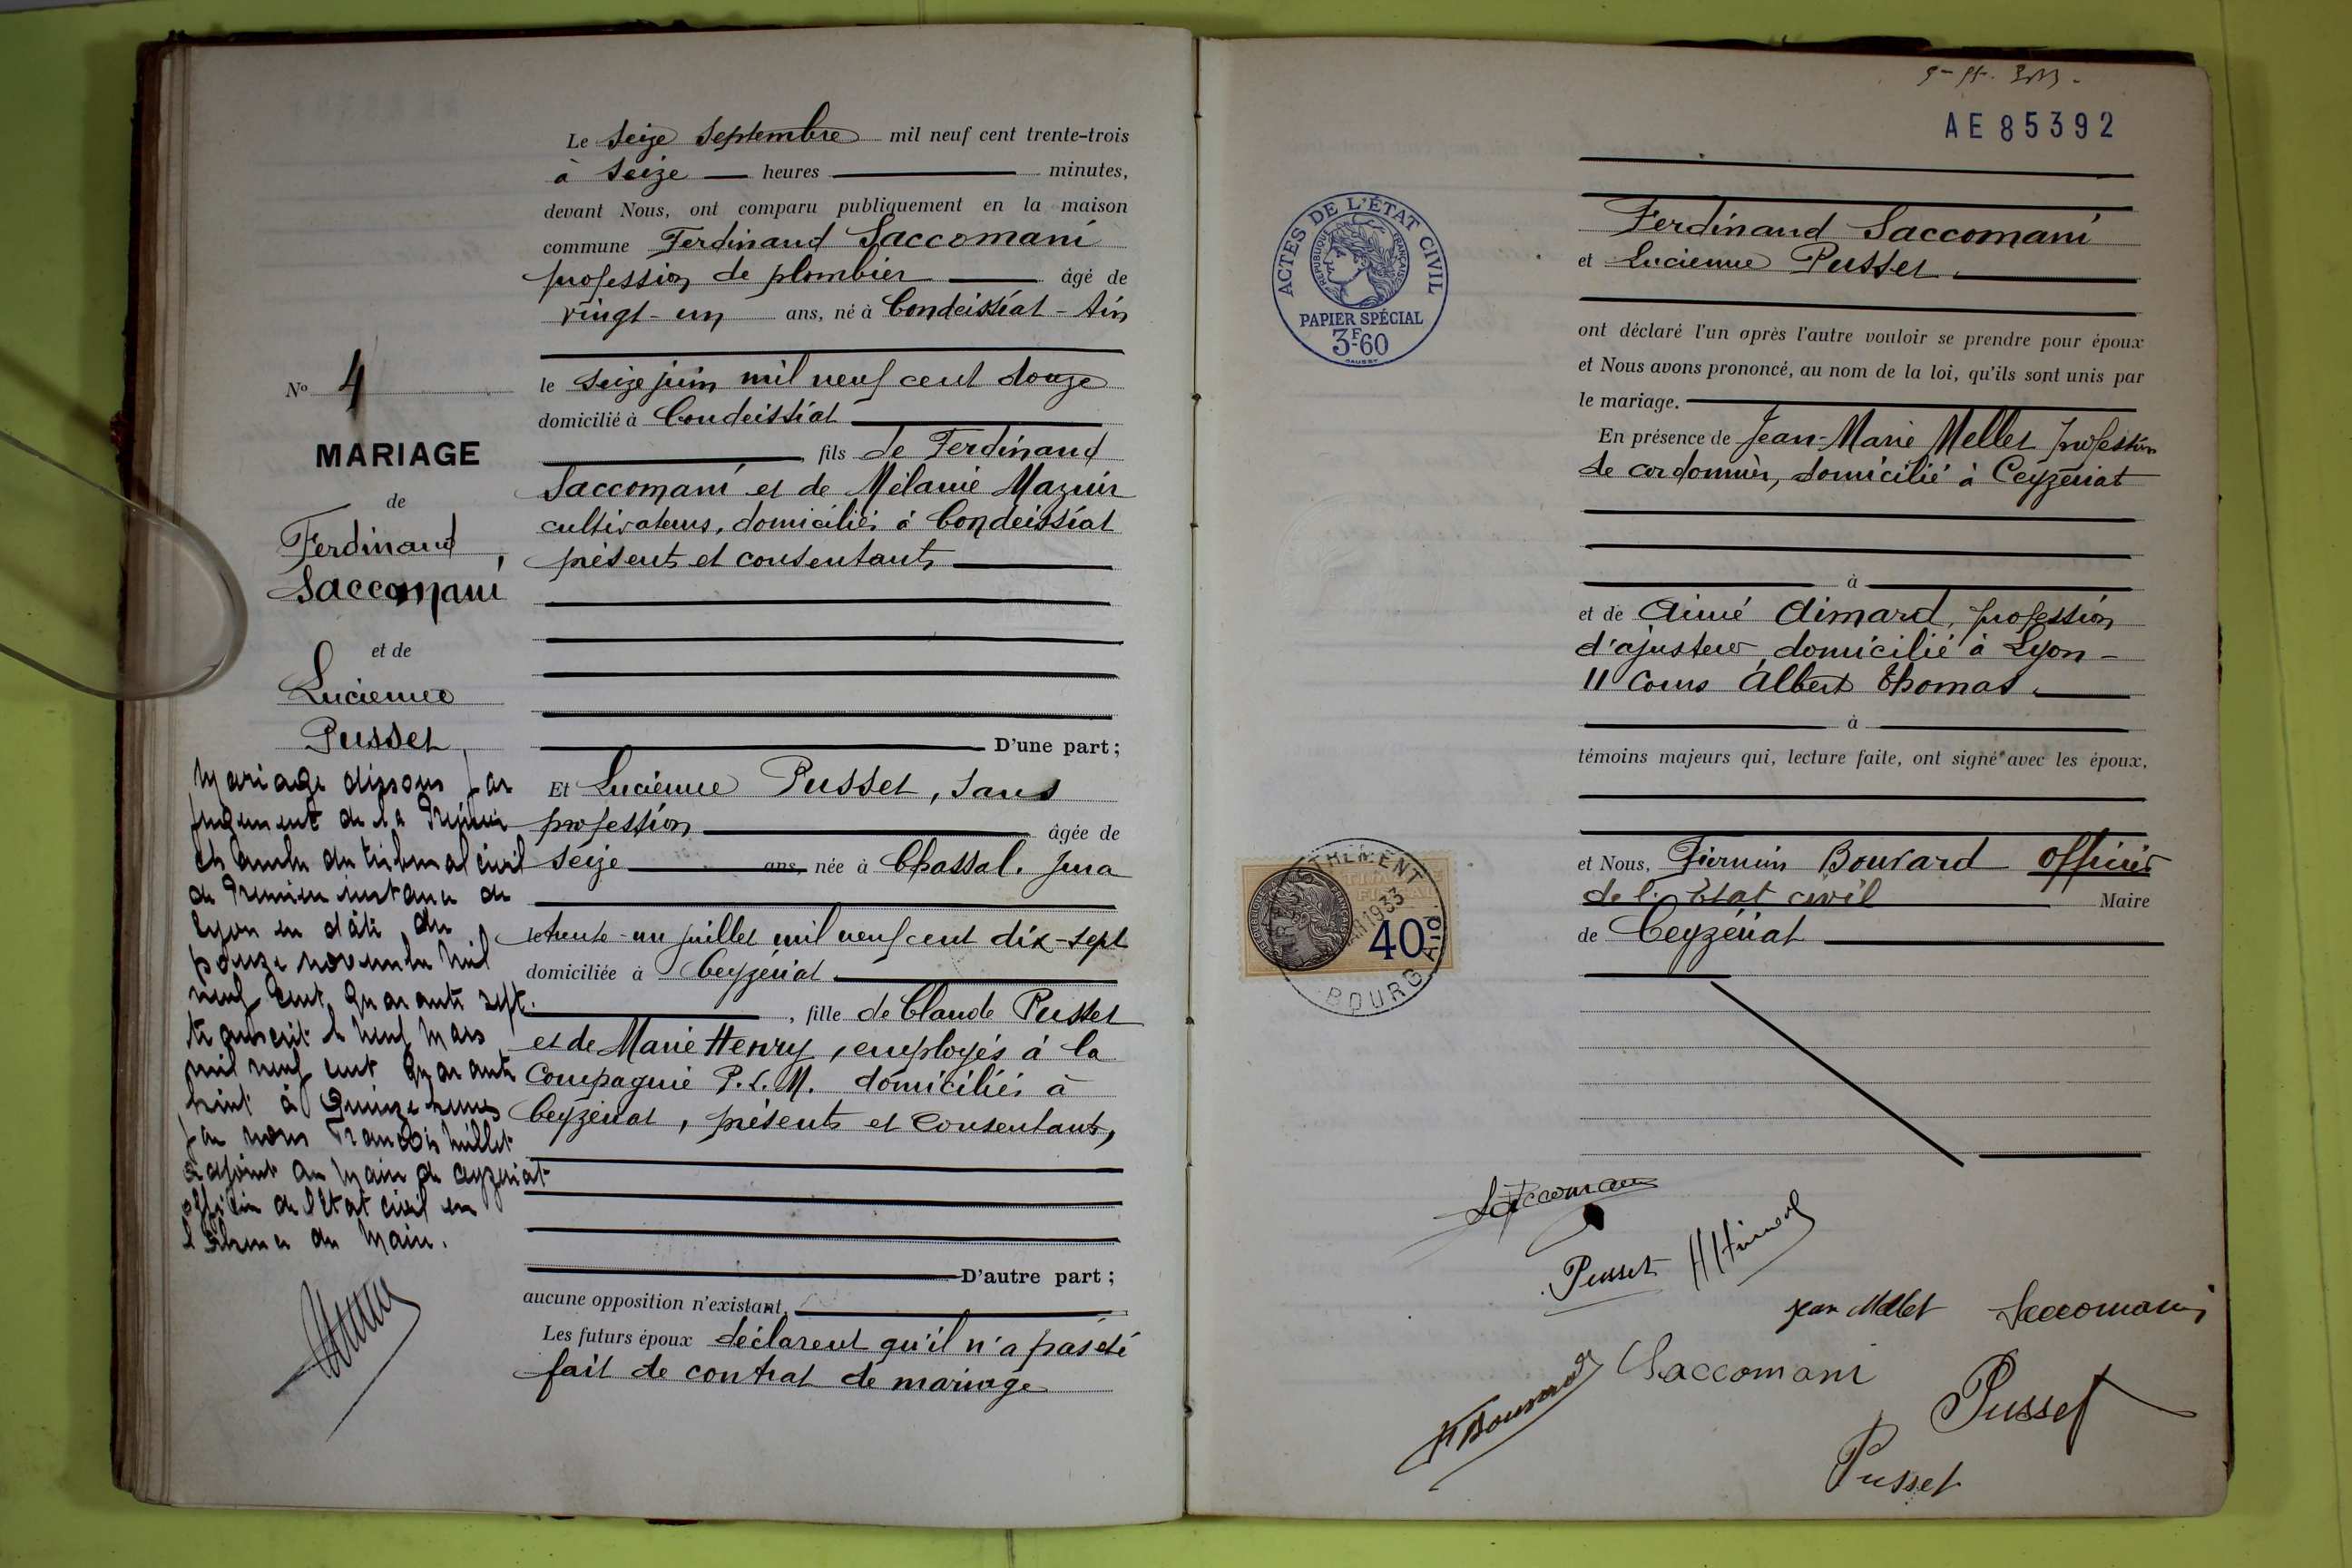 Le Seize Septembre mil neuf cent trente-trois
à Seize heures minutes,
devant Nous, ont comparu publiquement en la maison
commune Ferdinand Saccomani
profession de plombier âgé de
vingt-un ans, né à Condeissiat - Ain
le seize juin mil neuf cent douze
domicilié à Condeissiat
fils de Ferdinand
Saccomani et de Mélanie Mazuir
cultivateurs, domiciliés à Condeissiat
présents et consentants
D'une part;
Et Lucienne Pusset, sans
profession âgée de
seize ans, née à Chassal. Jura
le trente-un juillet mil neuf cent dix-sept
domiciliée à Ceyzériat
, fille de Claude Pusset
et de Marie Henry, employés à la
Compagnie P.L.M. domiciliés à
Ceyzériat, présents et consentants,
D'autre part;
aucune opposition n'existant,
Les futurs époux déclarent qu'il n'a pas été
fait de contrat de mariage
No 4
MARIAGE
de
Ferdinand
Saccomani
et de
Lucienne
Pusset
Mariage dissous par
jugement de la Première
chambre du tribunal civil
de Première instance de
Lyon en date du
novembre mil
neuf cent quarante sept.
transcrit le neuf Mars
mil neuf cent quarante
huit à quinze heures
par nous François Millet
adjoint au Maire de Ceyzériat
officier de l'Etat civil en
l'absence du Maire.
AE85392
ACTES DE L'ÉTAT CIVIL
RÉPUBLIQUE FRANÇAISE
PAPIER SPÉCIAL
3F60
Ferdinand Saccomani
et Lucienne Pusset
ont déclaré l'un après l'autre vouloir se prendre pour époux
et Nous avons prononcé, au nom de la loi, qu'ils sont unis par
le mariage.
En présence de Jean-Marie Mellet profession
de cordonnier, domicilié à Ceyzériat
à
et de Aimé Aimard, profession
d'ajusteur, domicilié à Lyon -
11 Cours Albert Thomas
à
témoins majeurs qui, lecture faite, ont signé avec les époux,
et Nous, Firmin Bouvard officier
de l'Etat civil Maire
de Ceyzériat
1933
40
BOURG
Saccomani
Pusset
Jean Mellet Saccomani
F Bouvard Saccomani
Pusset
Pusset